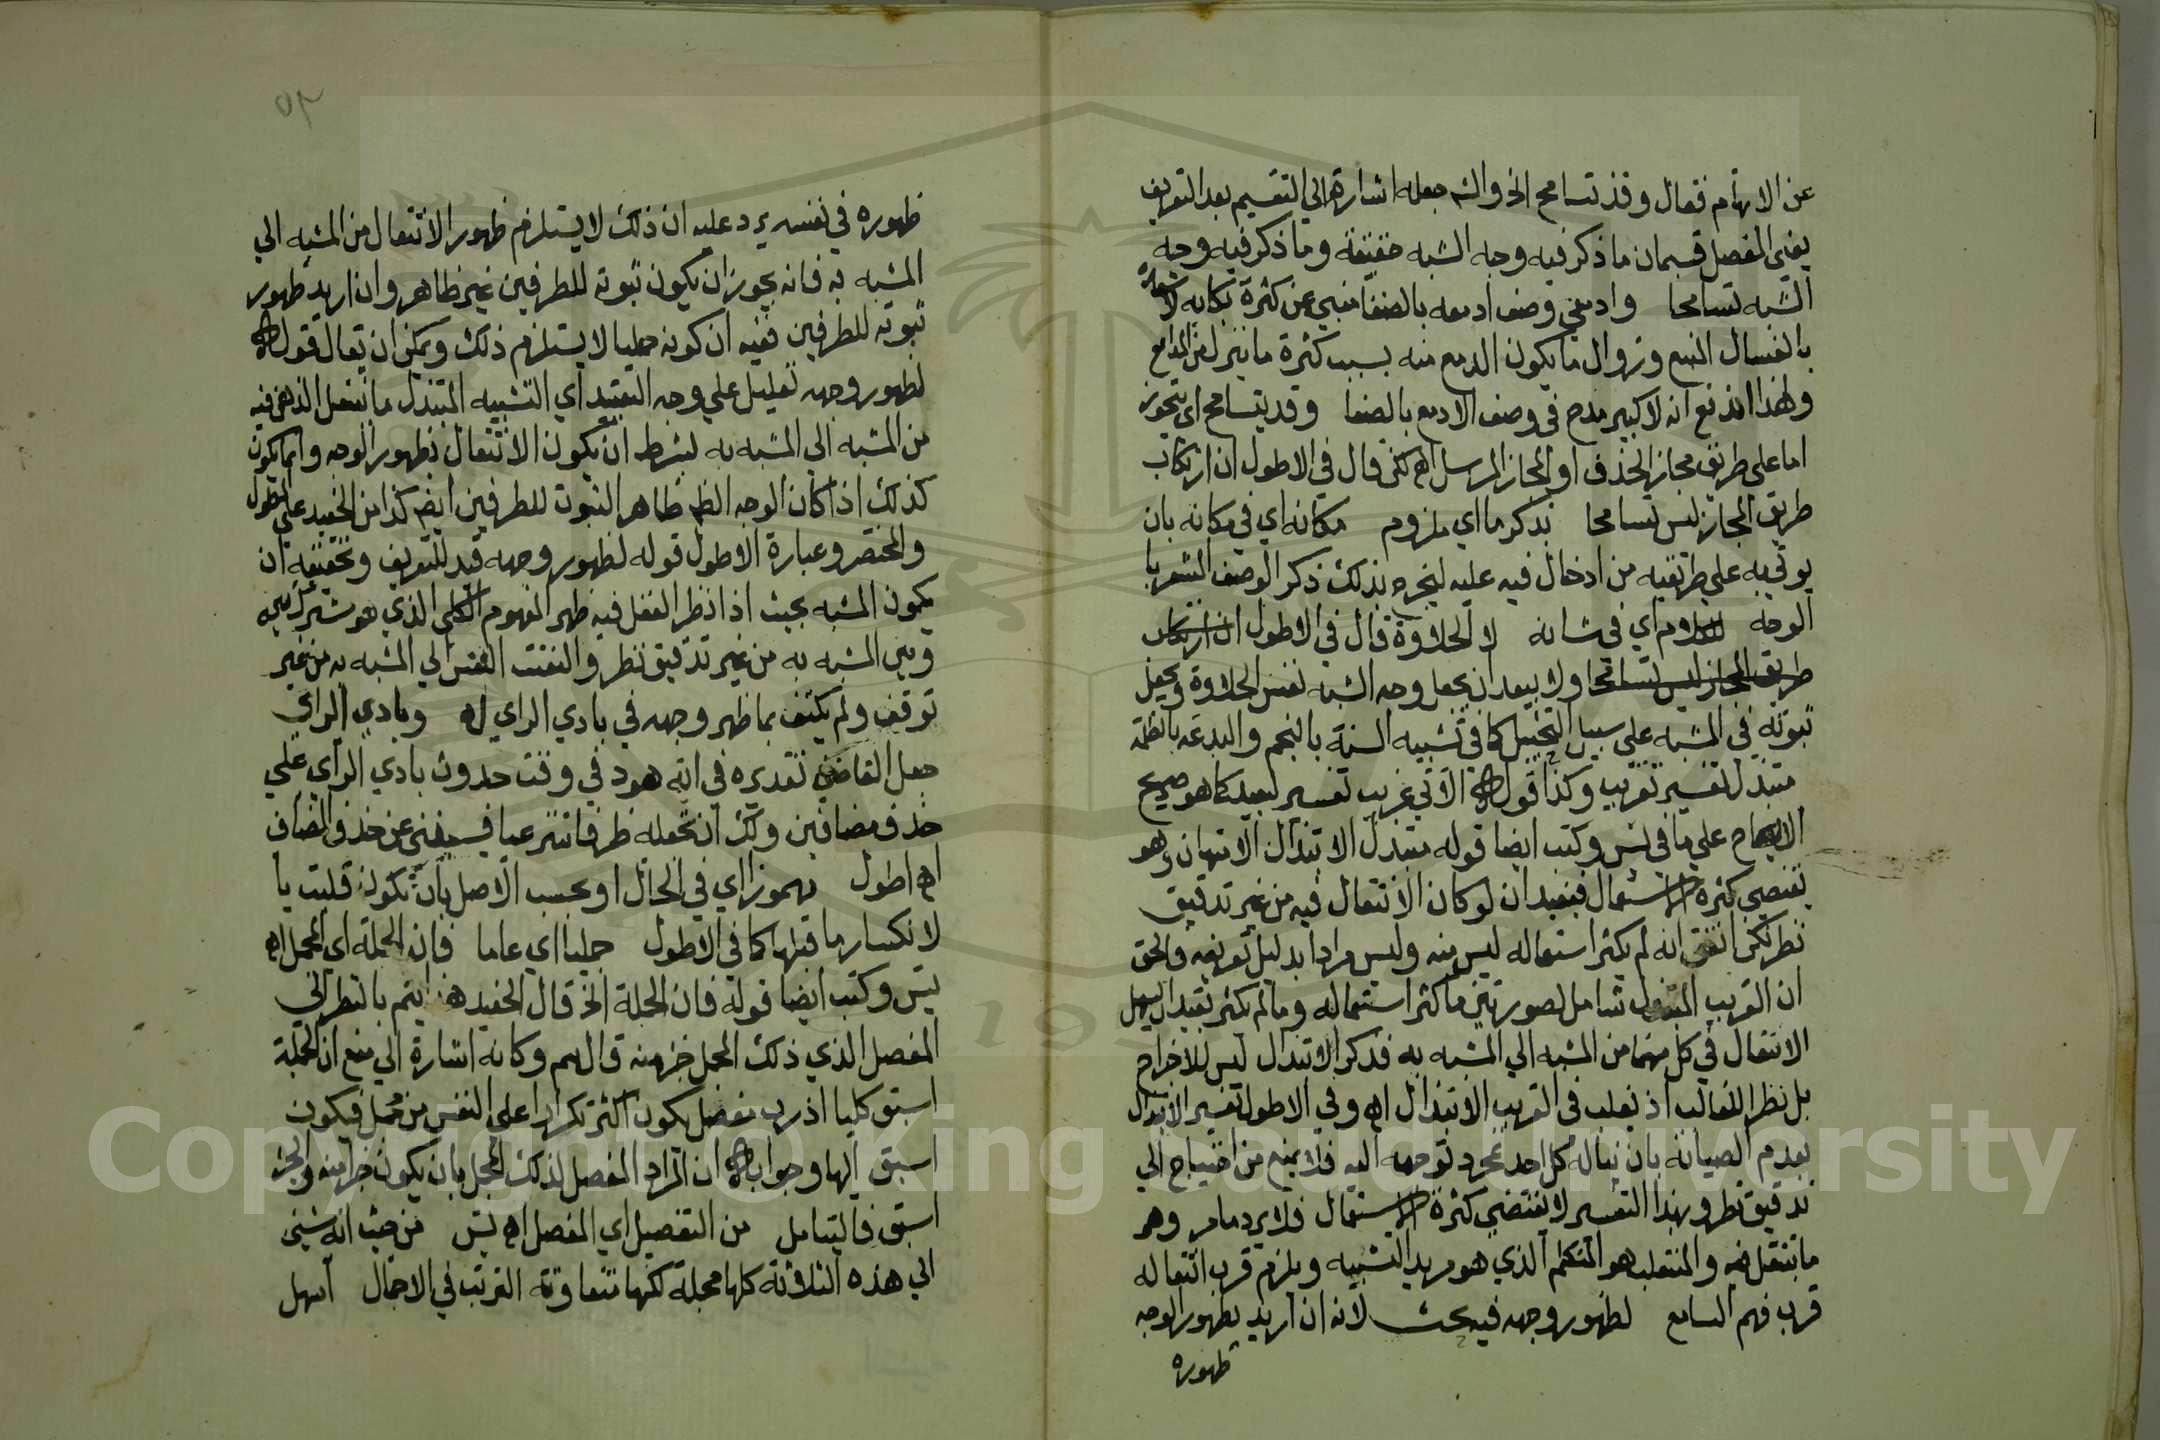 عن الابهام فقال وقد تسامح الخ والشم جعله اشارة الي التقسيم بعد التعريف
يعني المفصل قسمان ما ذكر فيه وجه الشبه حقيقة وما ذكر فيه وجه
الشبه تسامحا وادمعي وصف ادمعه بالصفا منبي عن كثرة بكائه لاشعاره
بالغسال المنبع وزوال ما يكون الدمع منه بسبب كثرة ما ينزل من المدامع
ولهذا اندفع انه لا كبير مدح في وصف الادمع بالصفا وقد يتسامح اي يتجوز
اما علي طريق مجاز الحذف او المجاز المرسل اه لكن قال في الاطول ان ارتكاب
طريق المجاز ليس تسامحا بذكر ما اي ملزوم مكانه اي في مكانه بان
يوتي به علي طريقيه من ادخال فيه عليه ليخرج بذلك ذكر الوصف المشعر با
الوجه للكلام اي في شانه لا الحلاوة قال في الاطول ان ارتكاب
طريق المجاز ليس تسامحا ولا يبعد ان يجعل وجه الشبه نفس الحلاوة ويجعل
ثبوته في المشبه علي سبيل التخييل كما في تشبيه السنة بالنجم والبدعة بالظلمة
مبتذل تفسير تقريب وكذا قوله الاتي غريب تفسير لبعيد كما هو صريح
الايضاح علي ما في يس وكتب ايضا قوله مبتذل الابتذال الامتهان وهو
يقتضي كثرة الاستعمال فيفيد ان لو كان الانتقال فيه من غير تدقيق
نظر لكن اتفق انه لم يكثر استعماله ليس منه وليس مرادا بدليل تعريفه والحق
ان القريب المبتذل شامل لصورتين ما كثر استعماله وما لم يكثر بقيد ان يسهل
الانتقال في كل منهما من المشبه الي المشبه به فذكر الابتذال ليس للاخراج
بل نظرا للغالب اذ يغلب في القريب الابتذال اه وفي الاطول تفسير الابتذال
بعدم الصيانة بان يناله كل احد بمجرد توجهه اليه فلا يمنع من احتياج الي
تدقيق نظر وبهذا التفسير لا يقتضي كثرة الاستعمال فلا يرد ما مر وهو
ما ينتقل فيه والمنتقل هو المتكلم الذي هو مريد التشبيه ويلزم قرب انتقاله
قرب فهم السامع لظهور وجهه فيه بحث لانه ان اريد بظهور الوجه
ظهوره
٥٣
ظهوره في نفسه يرد عليه ان ذلك لا يستلزم ظهور الانتقال من المشبه الي
المشبه به فانه يجوز ان يكون ثبوته للطرفين غير ظاهر وان اريد ظهور
ثبوته للطرفين ففيه ان كونه جمليا لا يستلزم ذلك ويمكن ان يقال قوله
لظهور وجهه تعليل علي وجه التقييد اي التشبيه المبتذل ما ينتقل الذهن فيه
من المشبه الي المشبه به بشرط ان يكون الانتقال لظهور الوجه وانما يكون
كذلك اذا كان الوجه الظ ظاهر الثبوت للطرفين ايضم كذا من الحفيد علي المطول
والمختصر وعبارة الاطول قوله لظهور وجهه قيد للتعريف وتحقيقه ان
يكون المشبه بحيث اذا نظر العقل فيه ظهر المفهوم الكلي الذي هو مشترك بينه
وبين المشبه به من غير تدقيق نظر والتفتت النفس الي المشبه به من غير
توقف ولم يكتف بما ظهر وجهه في بادي الراي اه وبادي الراي
جعل القاضي تقديره في اية هود في وقت حدوث بادي الراي علي
حذف مضافين ولك ان تجعله ظرفا تنزعيا فيستغني عن حذف المضاف
اه اطول مهموز اي في الحال او بحسب الاصل بان تكون قلبت يا
لانكسار ما قبلها كما في الاطول جمليا اي عاما فان الجملة اي المجمل اه
يس وكتب ايضا قوله فان الجملة الخ قال الحفيد هذا يتم بالنظر الي
المفصل الذي ذلك المجمل جزء منه قال سم وكانه اشارة الي منع ان الجملة
اسبق كليا اذ رب مفصل يكون اكثر تكرارا علي النفس من مجمل فيكون
اسبق اليها وجوابه ان المراد المفصل لذلك المجمل بان يكون جزءا منه والجزء
اسبق فاليتامل من التفصيل اي المفصل اه يس من حيث انه شيئ
الي هذه الثلاثة كلها مجملة لكنها متفاوتة القرب في الاجمال اسهل
Copyright © King Saud University